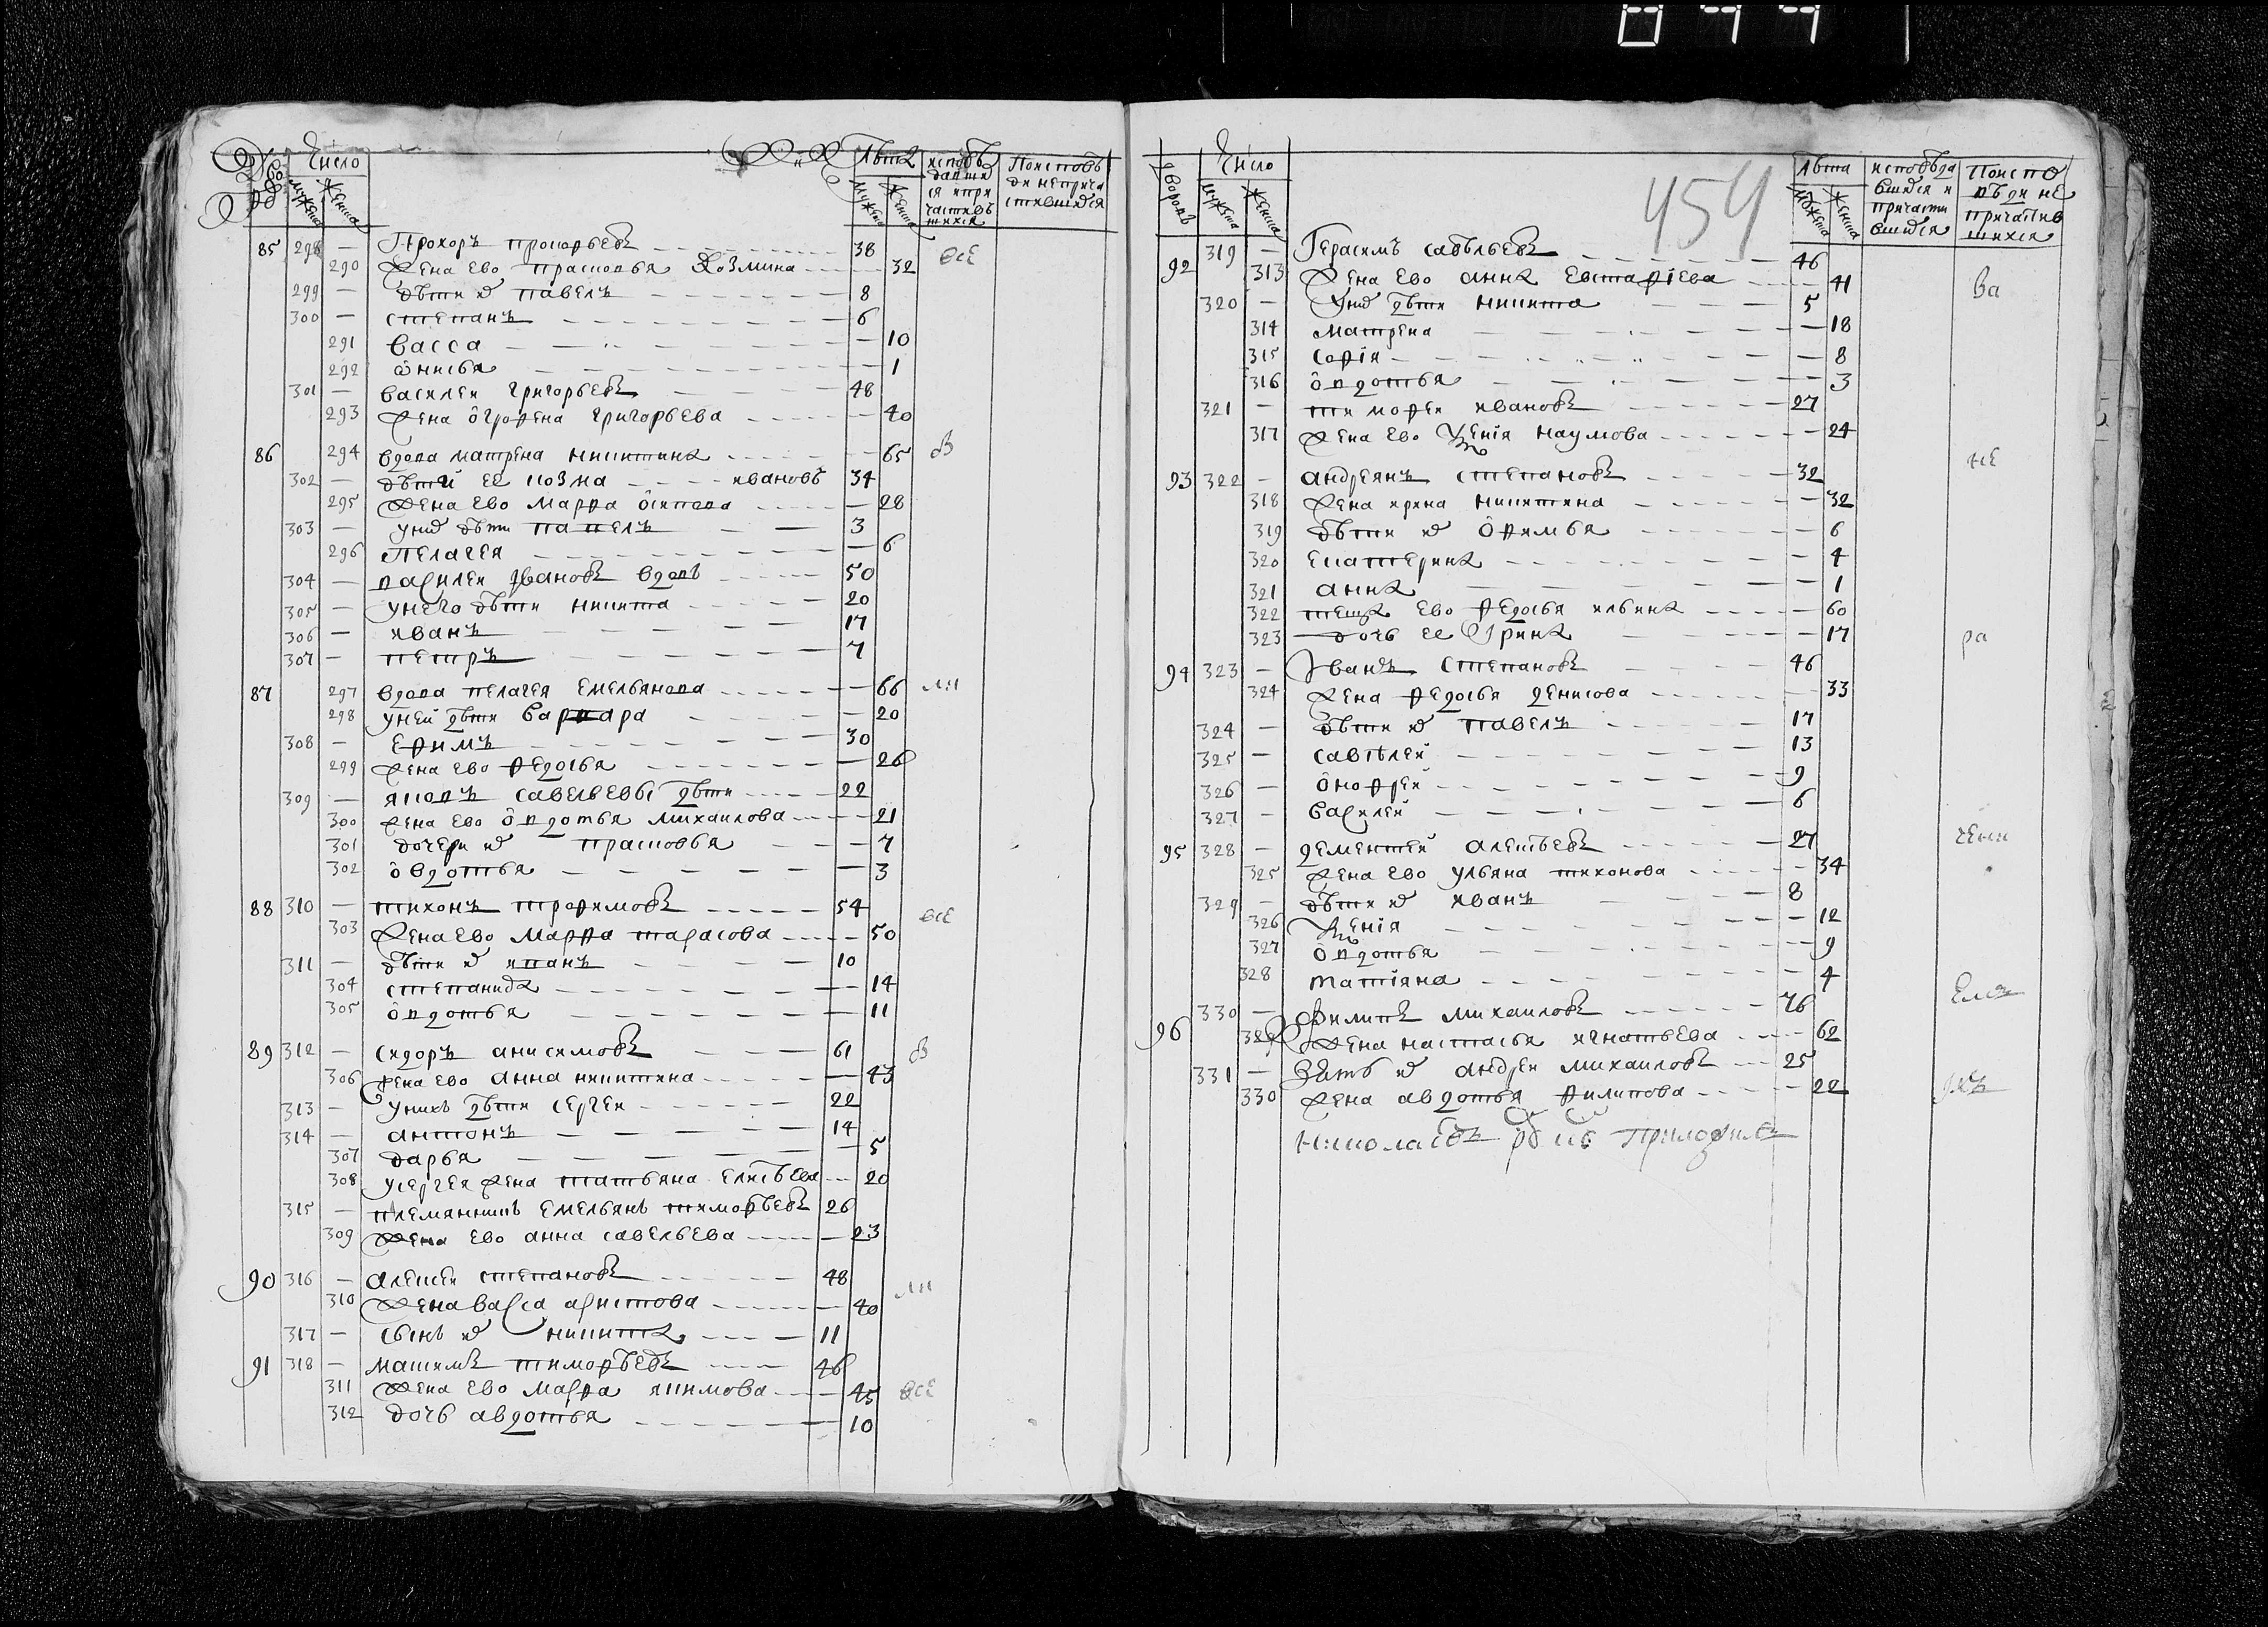 Дворовъ Число Лѣта исповѣдавшиися и причастившихся По исповѣди непричастившиися
мужеска женска мужеска женска
85 298 — Прохоръ прокорьевъ 38 всѣ
290 Жена ево прасковья Козмина 32
299 — дѣти их павелъ 8
300 — степанъ 6
291 васса — 10
292 ônисья — 1
301 — василеи григорьевъ 48
293 Жена ôгрофена григорьева — 40
86 294 вдова матрена никитина — 65 в
302 — дѣтей ее козма ивановъ 34
295 Жена ево Марфа ôсипова — 28
303 — у них дѣти павелъ 3
296 Пелагея — 6
304 — василеи Ивановъ вдовъ 50
305 — у него дѣти никита 20
306 — иванъ 17
307 — петръ 7
87 297 вдова пелагея Емельянова — 66 ли
298 у ней дѣти варвара — 20
308 — Ефимъ 30
299 Жена ево федосья — 26
309 — яковъ савельевы дѣти 22
300 Жена ево ôвдотья Михаилова — 21
301 дочери их прасковья — 7
302 ôвдотья — 3
88 310 — тихонъ трофимовъ 54 всѣ
303 Жена ево Марфа тарасова — 50
311 — дѣти их иванъ 10
304 степанида — 14
305 ôвдотья — 11
89 312 — сидоръ анисимовъ 61 в
306 Жена ево анна никитина — 43
313 — у нихъ дѣти сергеи 22
314 — антонъ 14
307 дарья — 5
308 у сергея жена татьяна Елисѣева 20
315 — племянникъ Емельянъ тимофѣевъ 26
309 Жена ево анна савельева — 23
90 316 — алексеи степановъ 48 ли
310 Жена васса аристова — 40
317 — сынъ их никита 11
91 318 — максимъ тимофѣевъ 46
311 Жена ево Марфа якимова — 45 всѣ
312 дочь авдотья — 10
454
дворовъ Число Лѣта исповѣдавшиися и причастившиися По исповѣди не причастившихся
мужеска женска мужеска женска
92 319 — Герасимъ савѣльевъ 46
313 Жена ево анна Евстафіева — 41 ва
320 — у них дѣти никита 5
314 матрена — 18
315 софія — 8
316 ôвдотья — 3
321 — тимофеи ивановъ 27
317 Жена ево Ксенія наумова — 24
93 322 — андреянъ степановъ 32 не
318 Жена ирина никитина — 32
319 дѣти их ôфимья — 6
320 Екатерина — 4
321 анна — 1
322 теща ево федосья ильина — 60
323 дочь ее Ирина — 17 ра
94 323 — Иванъ степановъ 46
324 Жена федосья денисова — 33
324 — дѣти их павелъ 17
325 — савѣлеи 13
326 — ôнофреи 9
327 — василеи 6
95 328 — дементеи алексѣевъ 27
325 Жена ево ульяна тихонова — 34
329 — дѣти их иванъ 8
326 Ксенія — 12
327 ôвдотья — 9
328 татіана — 4
96 330 — Филипъ Михаиловъ 76
329 Жена настасья игнатьева 62
331 — Зять их андреи михаиловъ 25
330 Жена авдотья филипова 22